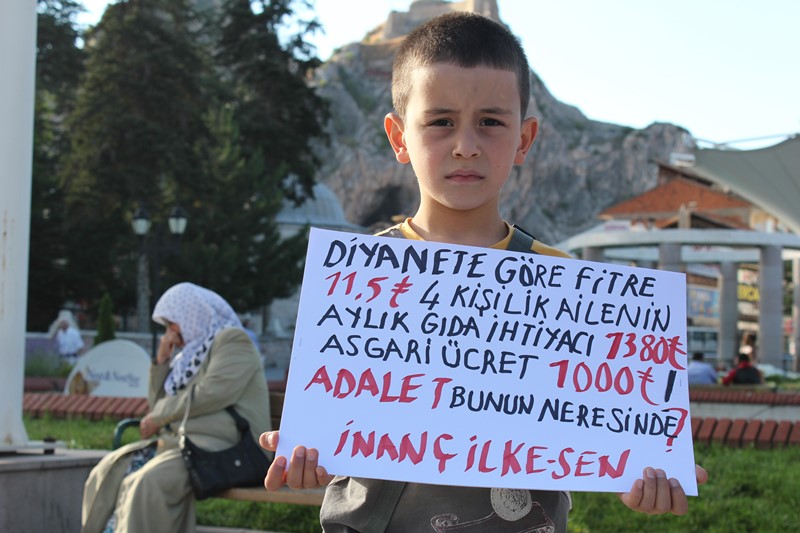 DİYANETE GÖRE FİTRE
11,5₺ 4 KİŞİLİK AİLENİN
AYLIK GIDA İHTİYACI 1380₺
ASGARİ ÜCRET 1000₺!
ADALET BUNUN NERESİNDE?
İNANÇ İLKE-SEN